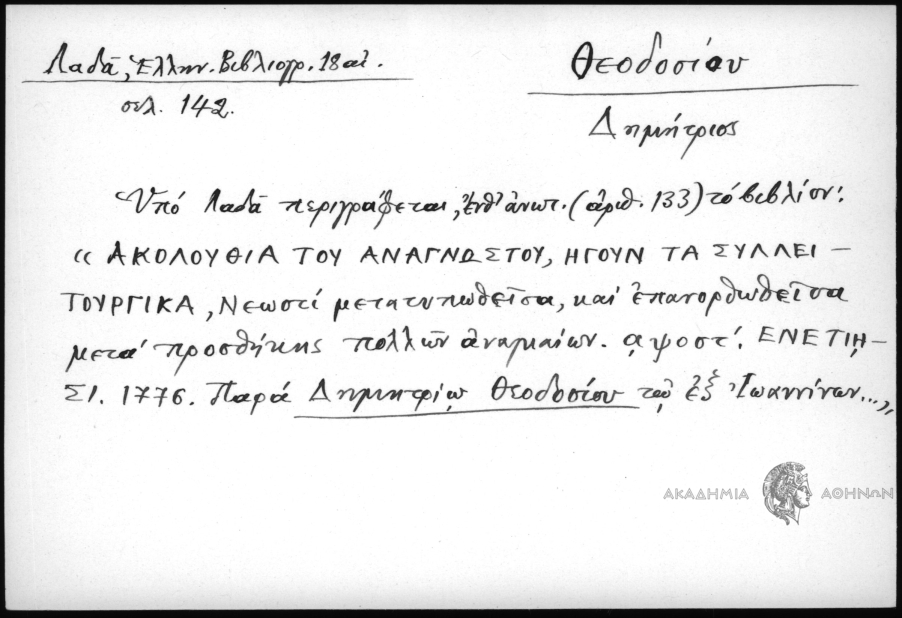 Λαδᾶ, Ἑλλην. Βιβλιογρ. 18 αἰ.
σελ. 142.
Θεοδοσίου
Δημήτριος
Ὑπό Λαδᾶ περιγράφεται, ἔνθ' ἀνωτ. (ἀριθ. 133) τό βιβλίον:
« ΑΚΟΛΟΥΘΙΑ ΤΟΥ ΑΝΑΓΝΩΣΤΟΥ, ΗΓΟΥΝ ΤΑ ΣΥΛΛΕΙ-
ΤΟΥΡΓΙΚΑ, Νεωστί μετατυπωθεῖσα, καί ἐπανορθωθεῖσα
μετά προσθήκης πολλῶν ἀναγκαίων. αψοστ'. ΕΝΕΤΙῌ-
ΣΙ. 1776. Παρά Δημητρίῳ Θεοδοσίου τῷ ἐξ Ἰωαννίνων...»
ΑΚΑΔΗΜΙΑ ΑΘΗΝΩΝ